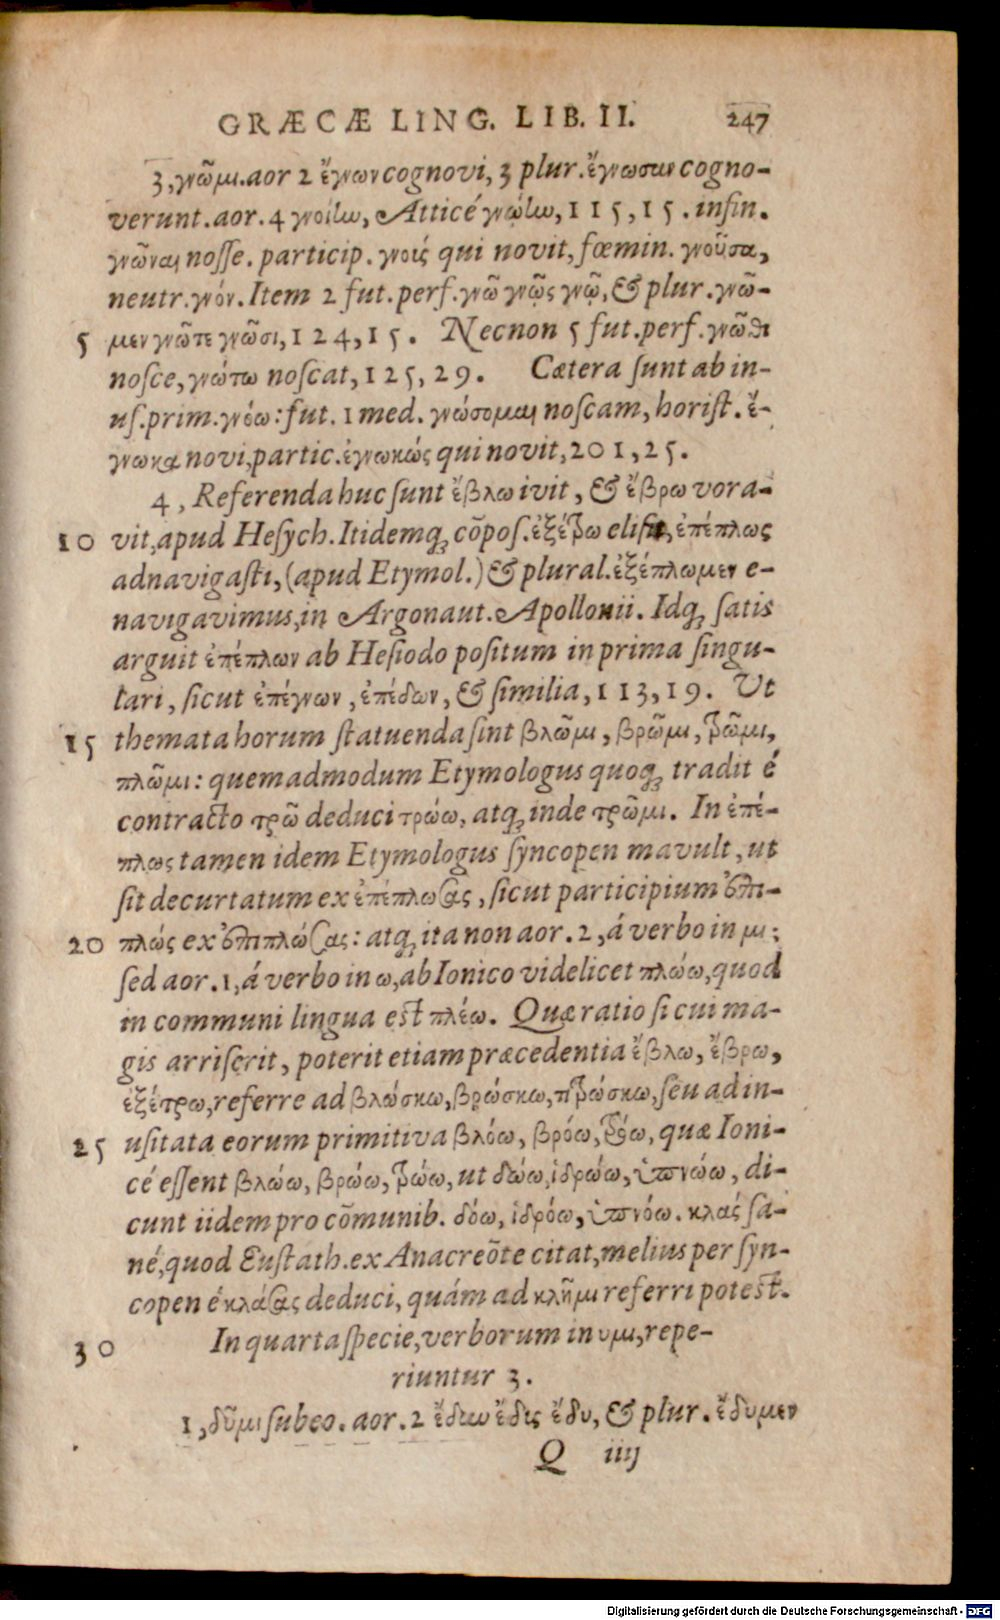 GRÆCÆ LING. LIB. II. 247
3, γνῶμι. aor 2 ἔγνων cognovi, 3 plur. ἔγνωσαν cogno-
verunt. aor. 4 γνοίlω, Atticé γνῴlω, 115, 15. infin.
γνῶναι nosse. particip. γνοὶς qui novit, fœmin. γνοῦσα,
neutr. γνόν. Item 2 fut. perf. γνῶ γνῷς γνῷ, & plur. γνῶ-
5 μεν γνῶτε γνῶσι, 124, 15. Necnon 5 fut. perf. γνῶθι
nosce, γνώτω noscat, 125, 29. Cætera sunt ab in-
us. prim. γνόω: fut. 1 med. γνώσομαι noscam, horist. ἔ-
γνωκα novi, partic. ἐγνωκώς qui novit, 201, 25.
4, Referenda huc sunt ἔβλω ivit, & ἔβρω vora-
10 vit, apud Hesych. Itidemq; cōpos. ἐξέτρω elisit, ἐπέπλως
adnavigasti, (apud Etymol.) & plural. ἐξέπλωμεν e-
navigavimus, in Argonaut. Apollonii. Idq; satis
arguit ἐπέπλων ab Hesiodo positum in prima singu-
lari, sicut ἐπέγνων, ἐπέδων, & similia, 113, 19. Ut
15 themata horum statuenda sint βλῶμι, βρῶμι, τρῶμι,
πλῶμι: quemadmodum Etymologus quoq; tradit é
contracto τρῶ deduci τρώω, atq; inde τρῶμι. In ἐπέ-
πλως tamen idem Etymologus syncopen mavult, ut
sit decurtatum ex ἐπέπλωσας, sicut participium ἐπι-
20 πλώς ex ἐπιπλώσας: atq; ita non aor. 2, á verbo in μι;
sed aor. 1, á verbo in ω, ab Ionico videlicet πλώω, quod
in communi lingua est πλέω. Quæ ratio si cui ma-
gis arriserit, poterit etiam præcedentia ἔβλω, ἔβρω,
ἐξέτρω, referre ad βλώσκω, βρώσκω, τιτρώσκω, seu ad in-
25 usitata eorum primitiva βλόω, βρόω, τρόω, quæ Ioni-
cé essent βλώω, βρώω, τρώω, ut δώω, ἱδρώω, ὑπνώω, di-
cunt iidem pro cōmunib. δόω, ἱδρόω, ὑπνόω. κλάς sa-
né, quod Eustath. ex Anacreōte citat, melius per syn-
copen é κλάσας deduci, quám ad κλῆμι referri potest.
30 In quarta specie, verborum in υμι, repe-
riuntur 3.
1, δῦμι subeo. aor. 2 ἔδυν ἔδυς ἔδυ, & plur. ἔδυμεν
Q iiij
Digitalisierung gefördert durch die Deutsche Forschungsgemeinschaft - DFG